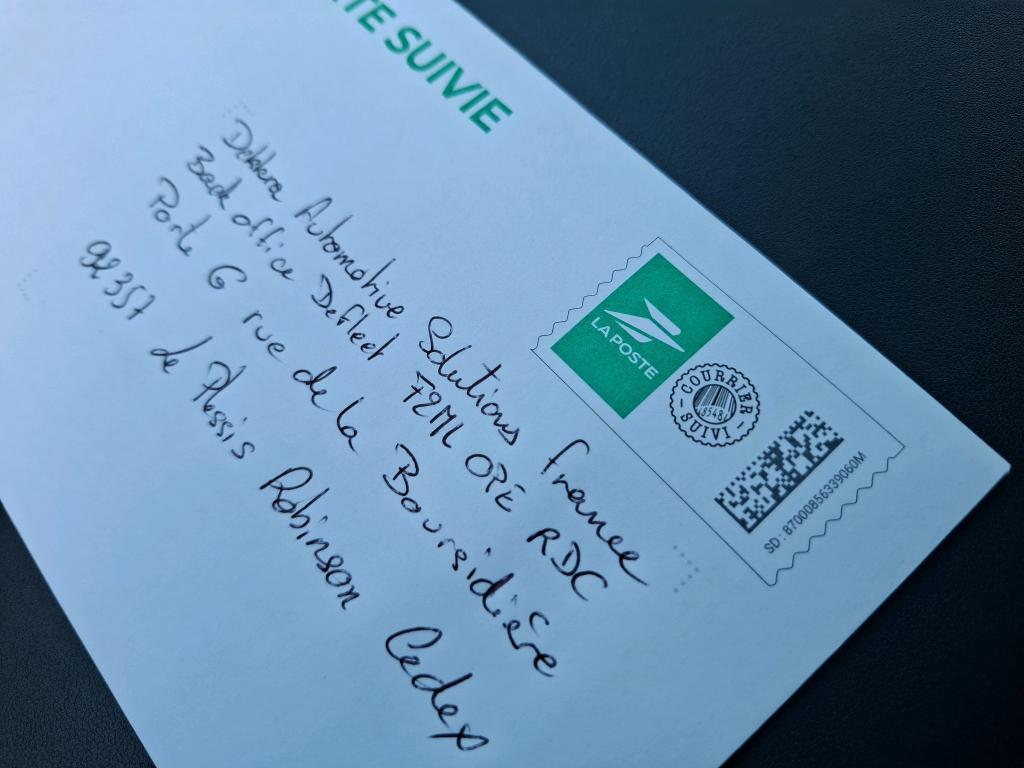 TE SUIVIE
Dekkera Automotive Solutions France
Back office Defleet 72ML OPE RDC
Porte G rue de la Boursidière
92357 de Plessis Robinson Cedex
LA POSTE
COURRIER
8548
SUIVI
SD : 8700085633906OM